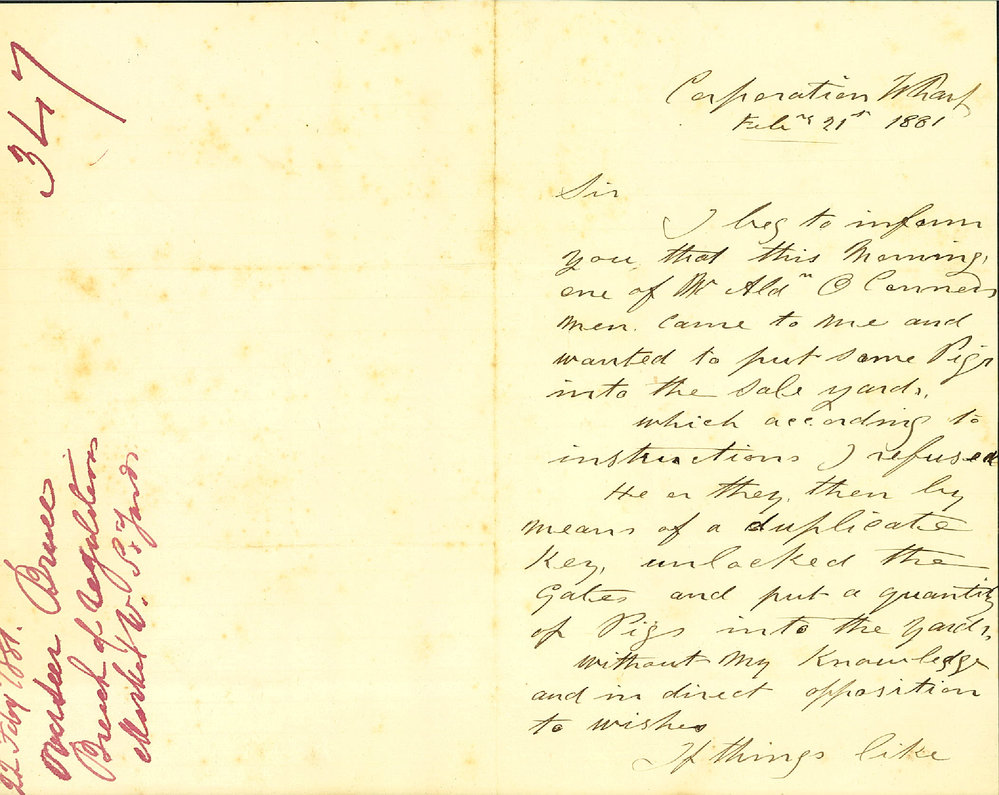 347
22 Feby 1881.
Overseer Bruce
Breach of regulations
Market W. St Yards
Corporation Wharf
Feb.ry 21st 1881
Sir
I beg to inform
you, that this Morning,
one of Mr Aldn O Conners
Men. Came to me and
wanted to put some Pigs
into the Sale yards,
which according to
instructions I refused
He or they, then by
means of a duplicate
Key, unlocked the
Gates and put a quantity
of Pigs into the Yards,
without My Knowledge
and in direct opposition
to wishes
If things like